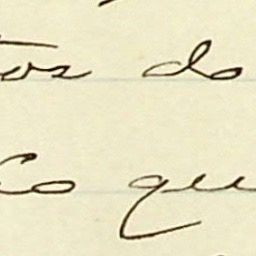 tos do
co qu